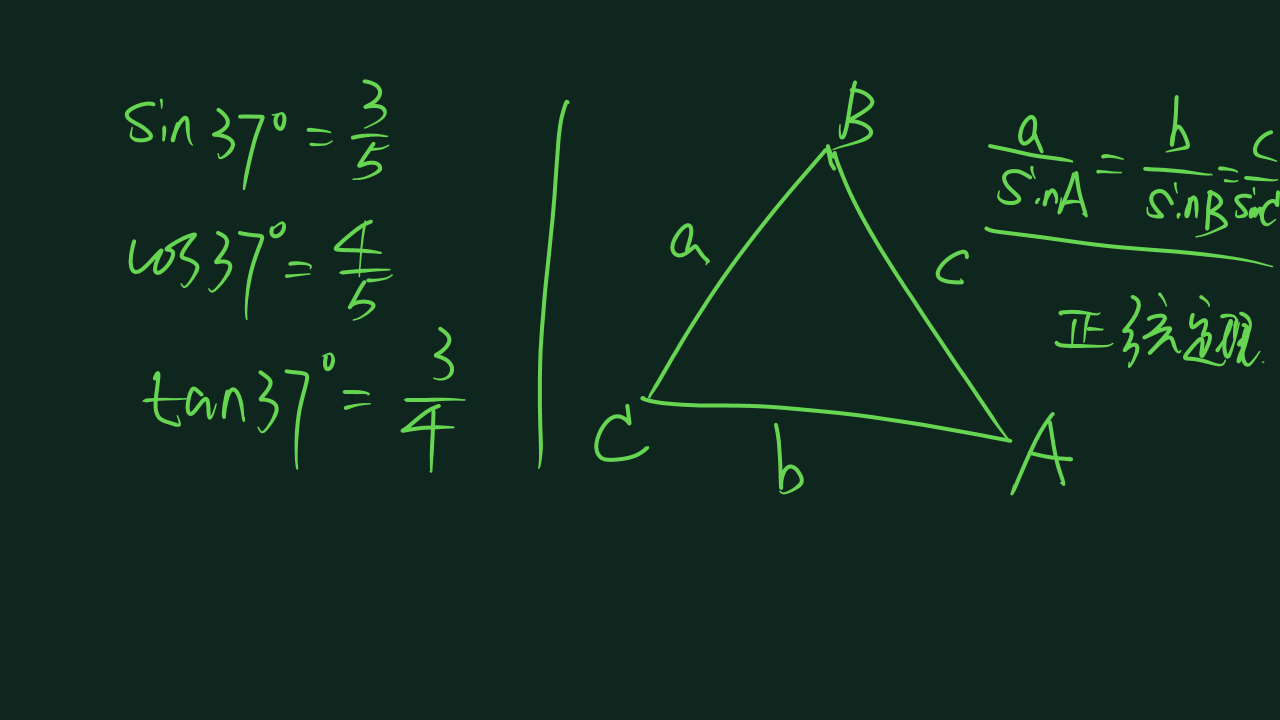 sin37°=3/5
cos37°=4/5
tan37°=3/4
B
a
c
C
b
A
a/sinA=b/sinB=c/sinC
正弦定理